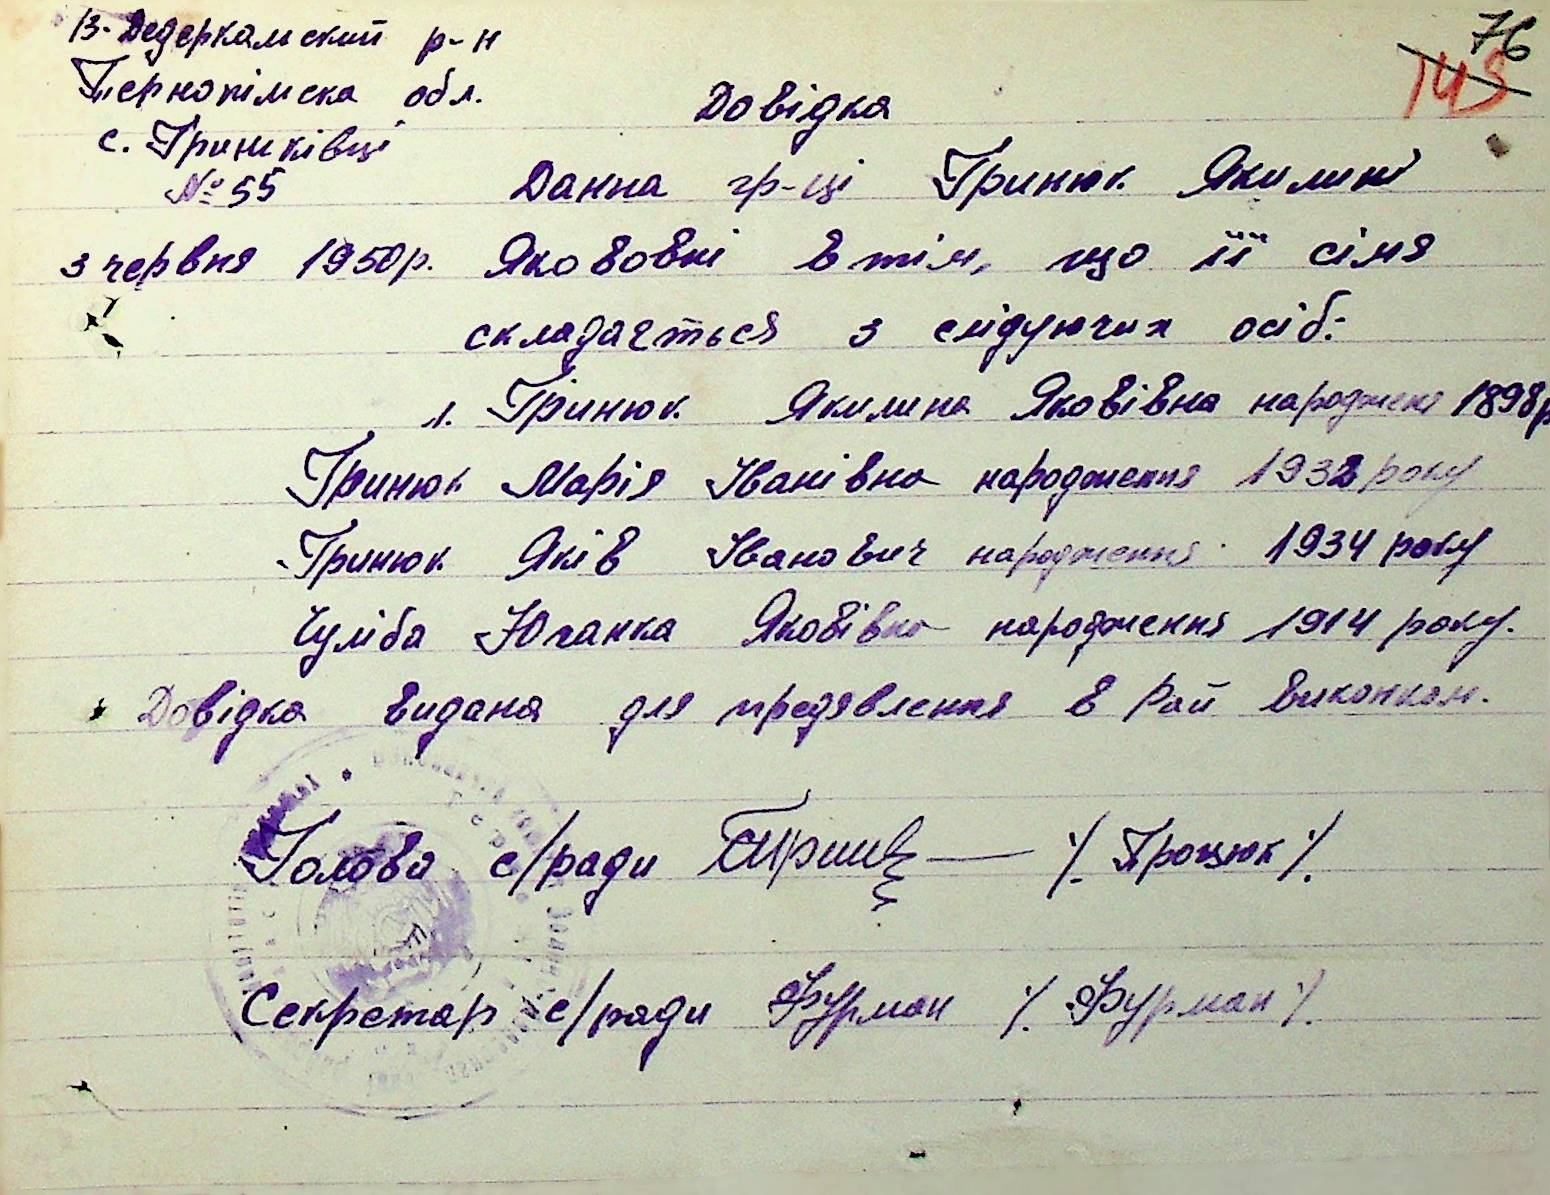 В-Дедеркамский р-н
Тернопілмска обл.
с. Гриньківці
№ 55
3 червня 1950 р.
76
143
Довідка
Данна гр-ці Гринюк Якилині
Якововні в тім, що її сімя
складаєтьься з слідуючих осіб:
1. Гринюк Якилина Яковівна народження 1898 р
Гринюк Марія Іванівна народження 1932 року
Гринюк Яків Іванович народження 1934 року
Чуліба Юганка Яковівна народження 1914 року.
Довідка видана для предявлення в Рай виконком.
Голова с/ради /. Процюк /.
Секретар с/ради Фурман /. Фурман /.